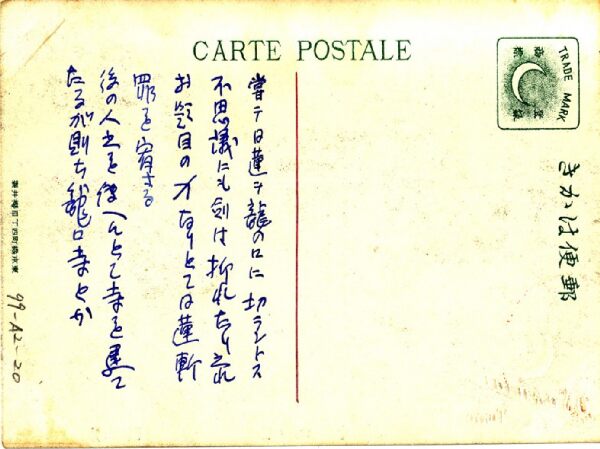 CARTE POSTALE
TRADE MARK
きかは便郵
嘗テ日蓮ヲ龍の口に切ラントス
不思議にも剣は折れたり之れ
お題目の力なりとて日蓮斬
罪を宥さる
後の人之を伝へんとて寺を建て
たるが則ち龍口寺とか
99-A2-20